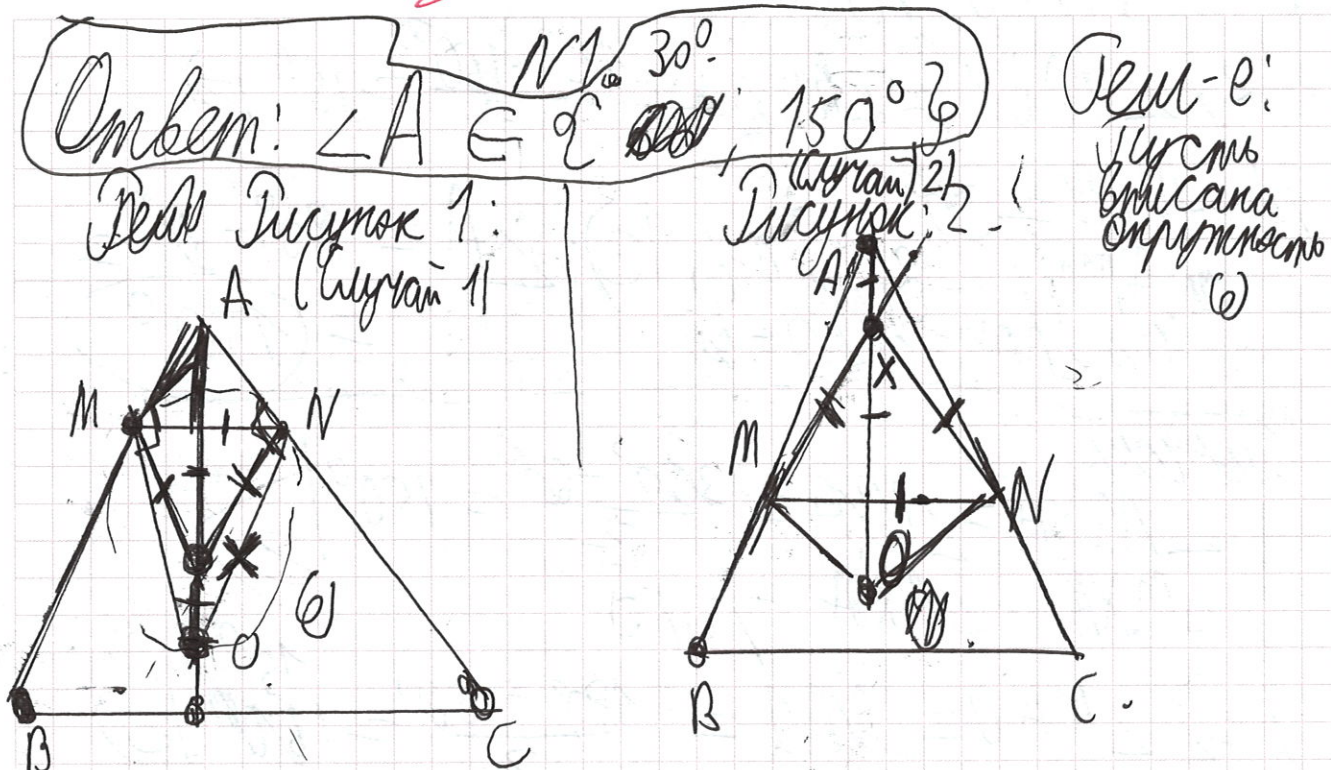 N1.
Ответ: ∠A ∈ { 30°; 150° }
Реш-е:
Пусть
вписана
окружность
ω
Рисунок 1:
(Случай 1)
(Случай) 2)
Рисунок: 2.
A
M
N
O
ω
B
C
A
X
M
N
O
B
C.